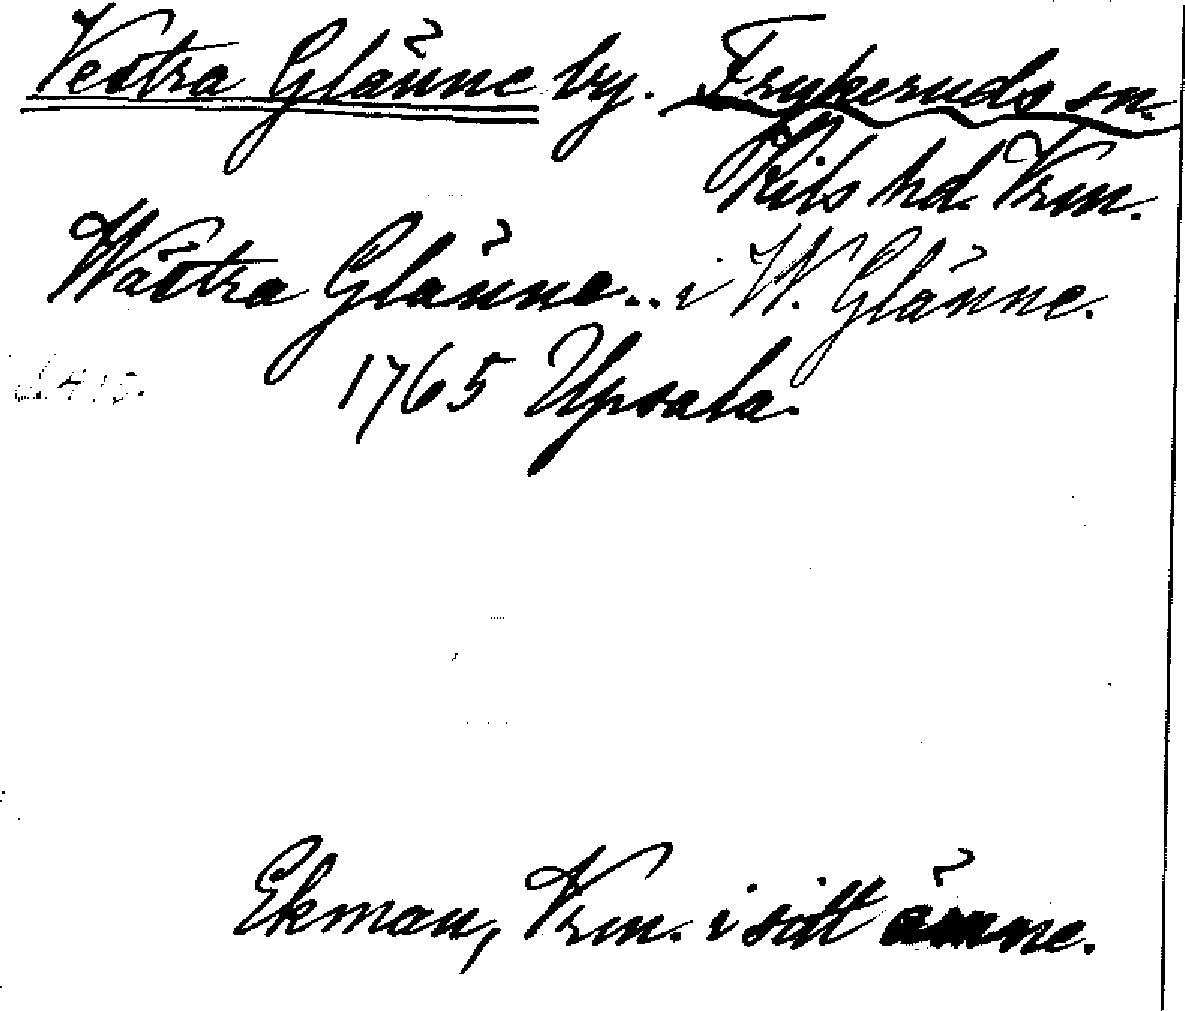 Vestra Glänne by. Frykeruds sn.
Kils hd. Vrm.
Wästra Glänne... i W. Glänne.
1765 Upsala.
Ekman, Vrm. i sitt ämne.